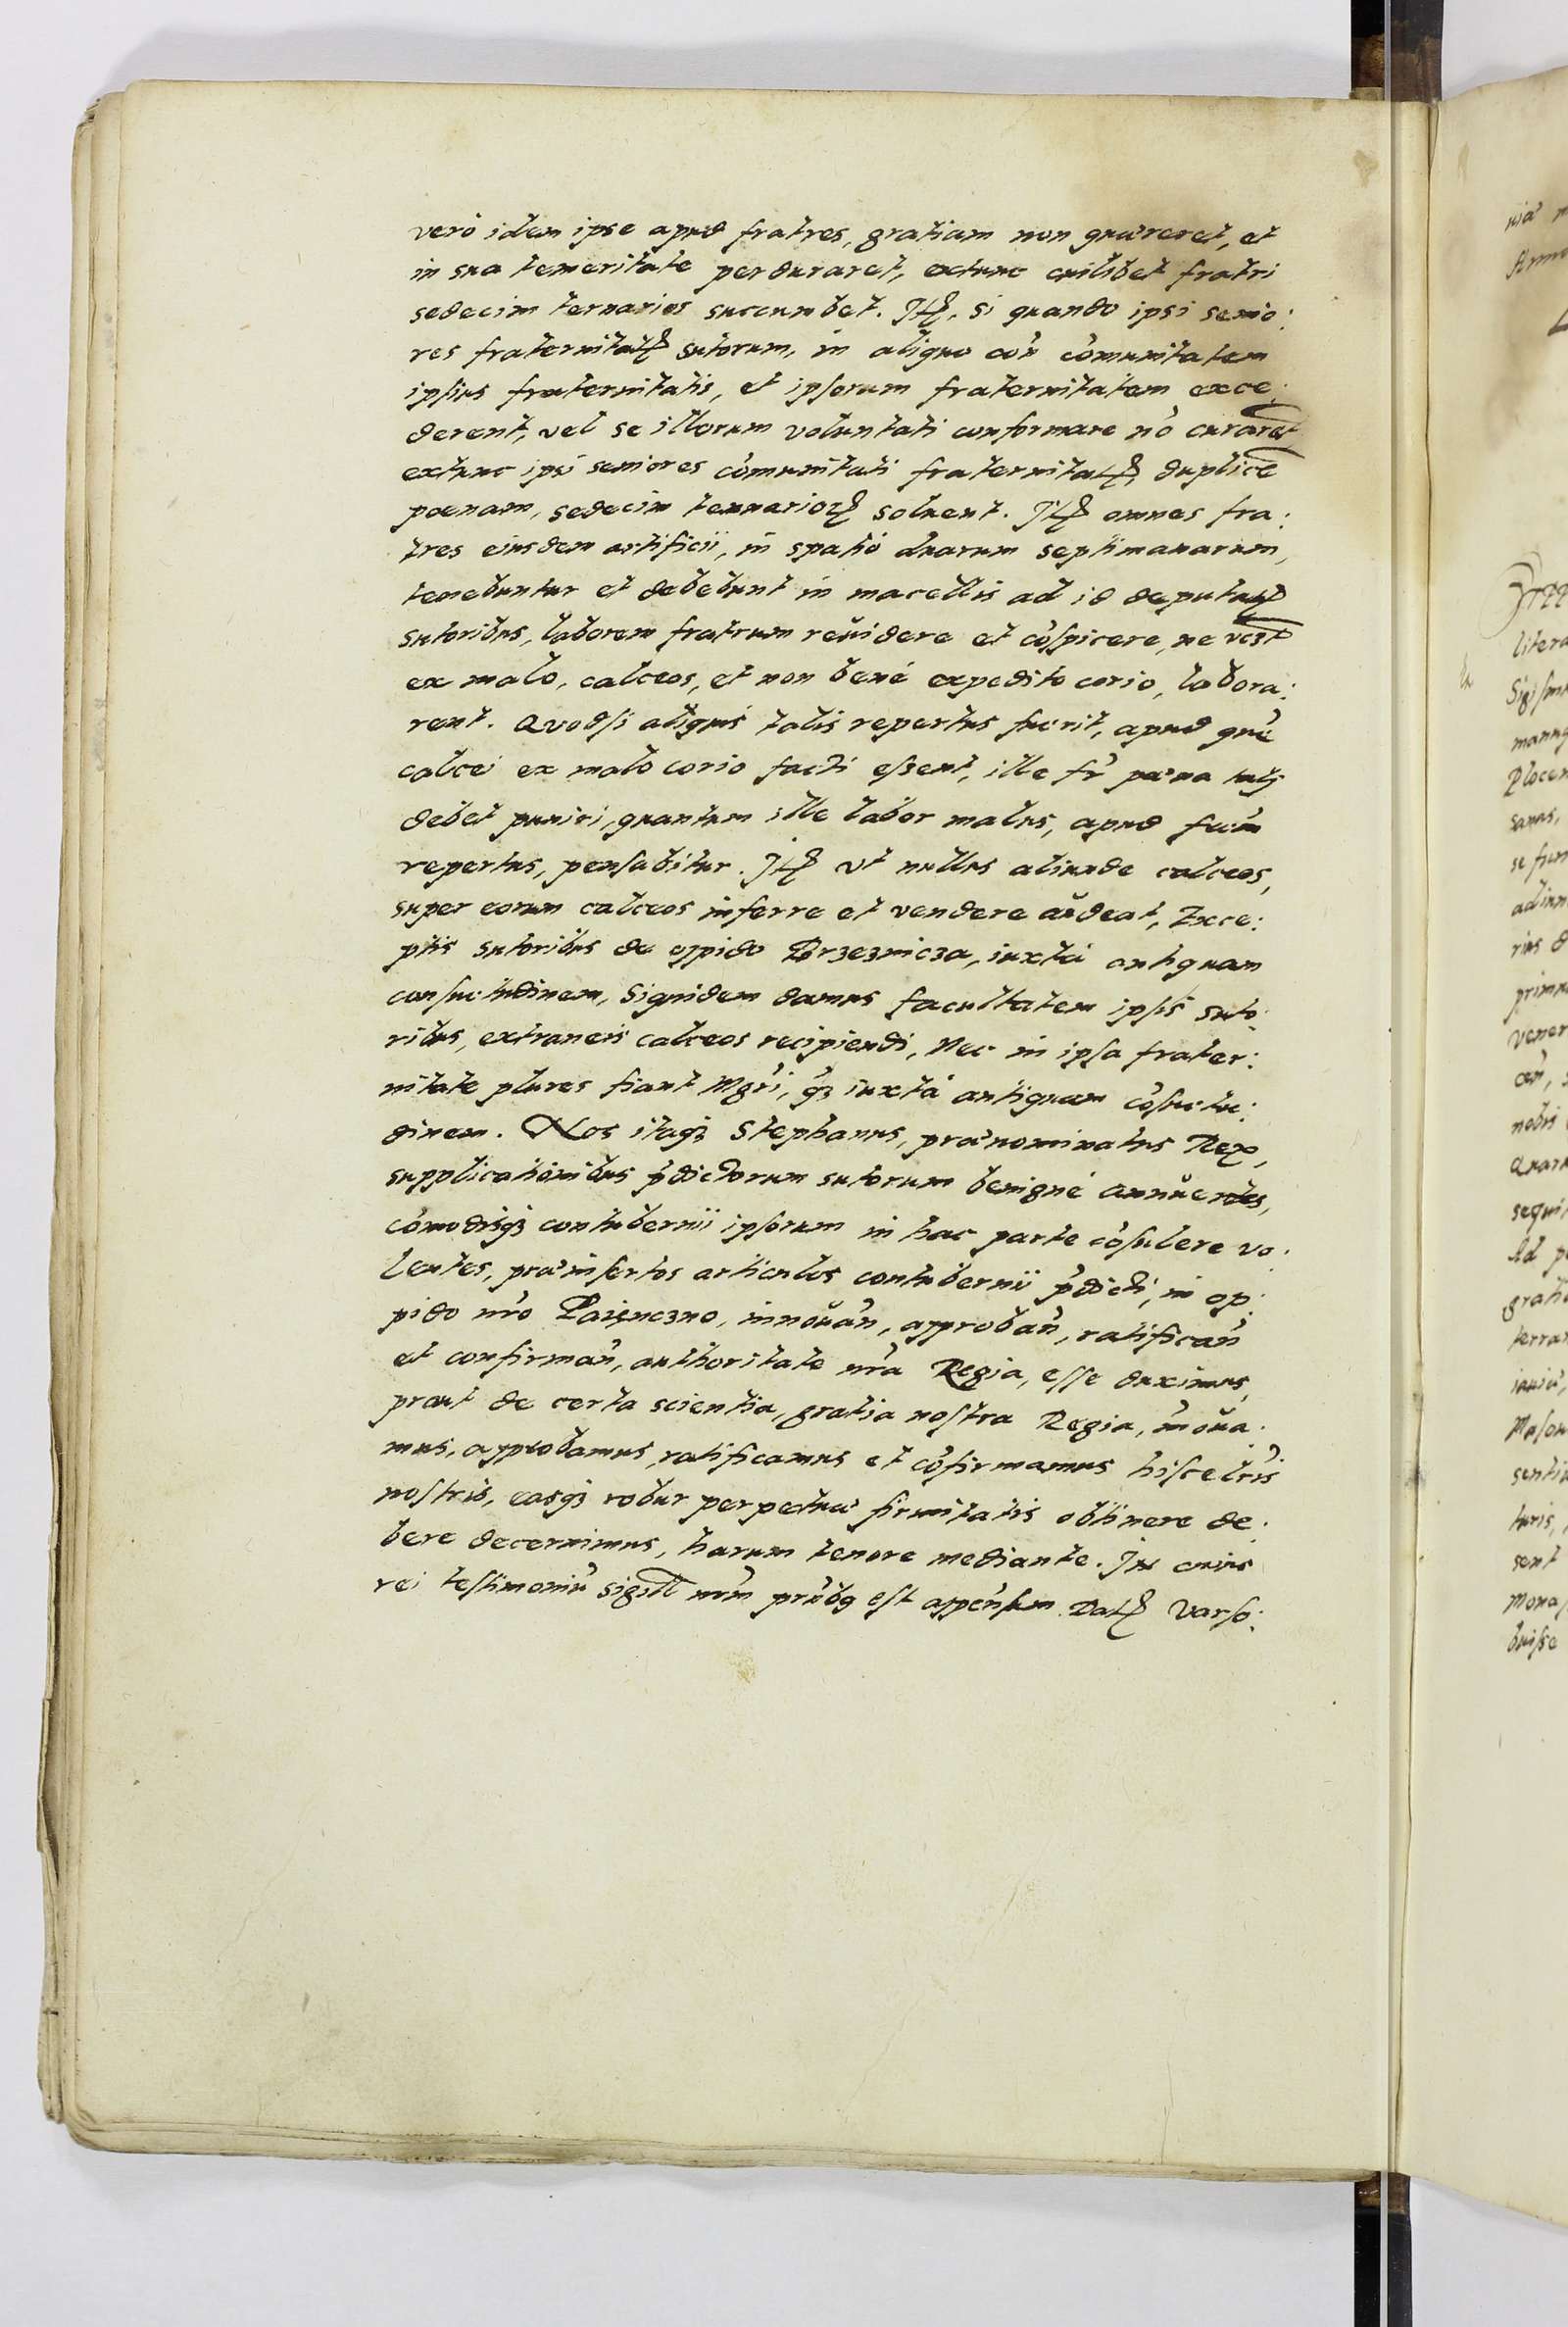 verò idem ipse apud fratres, gratiam non quæreret, et
in sua temeritate perduraret, extunc cuilibet fratri
sedecim ternarios succumbet. Itꝫ, Si quando ipsi senio:
res fraternitatꝭ sutorum, in aliquo cõn cõmunitatem
ipſius fraternitatis, et ipſorum fraternitatem exce:
derent, vel se illorum voluntati conformare nõ curaret
extunc ipsi seniores cõmunitati fraternitatꝭ, duplicẽ
pœnam, sedecim ternarioꝝ soluent. Itꝫ omnes fra:
tres eiusdem artificii, in spatio duarum septimanarum,
tenebuntur et debebunt in macellis ad id deputatꝭ
sutoribus, laborem fratrum reuidere et cõſpicere, ne
ex malo, calceos, et non benè expedito corio, labora:
rent. Quodſi aliquis talis repertus fuerit, apud quẽ
calcei ex malo corio facti eſsent, ille fr̃ pœna tali
debet puniri, quantum ille labor malus, apud
repertus, penſabitur. Itꝫ vt nullus aliunde calceos,
super eorum calceos inferre et vendere audeat, Exce:
ptis sutoribus de oppido Brzeznicza, iuxtà antiquam
conſuetudinem, Siquidem damus facultatem ipſis suto:
ribus, extraneis calceos recipiendi, Nec in ipſa frater:
nitate plures fiant Mgr̃i, qꝫ iuxtà antiquam cõſuetu:
dinem. Nos itaqꝫ Stephanus, prænominatus Rex,
supplicationibus p̃dictorum sutorum benignè annuentes,
cõmodisqꝫ contubernii ipſorum in hac parte cõſulere vo:
lentes, præinſertos articulos contubernii p̃dicti, in op:
pido nr̃o Paięczno, innouañ, approbañ, ratificañ
et confirmañ, authoritate nr̃a Regia, eſſe duximus,
prout de certa scientia, gratia noſtra Regia, iñoua:
mus, approbamus, ratificamus et cõfirmamus hiſce lr̃is
noſtris, easqꝫ robur perpetuæ firmitatis obtinere de:
bere decernimus, harum tenore mediante. In cuius
rei teſtimoniũ sigill nr̃m pr̃ñbꝯ eſt appeñſum Datꝫ Varſo: